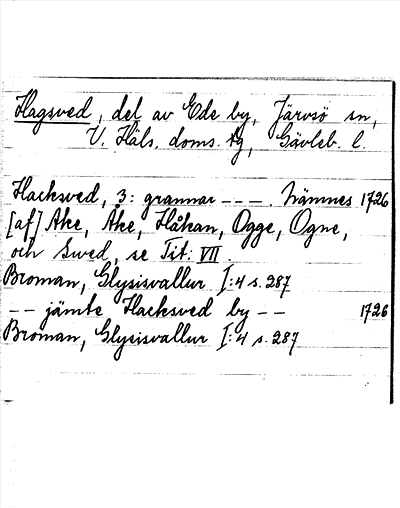 Hagsved, del av Ede by, Järvsö sn,
V. Häls. doms. tg, Gävleb. l.
Hacksved, 3: grannar - - -. Nämnes 1726
[af] Ake, Ake, Håkan, Ogge, Ogne,
och Swed, se Tit: VII.
Broman, Glysisvallur I:4 s. 287
- - jämte Hacksved by - - 1726
Broman, Glysisvallur I:4 s. 287